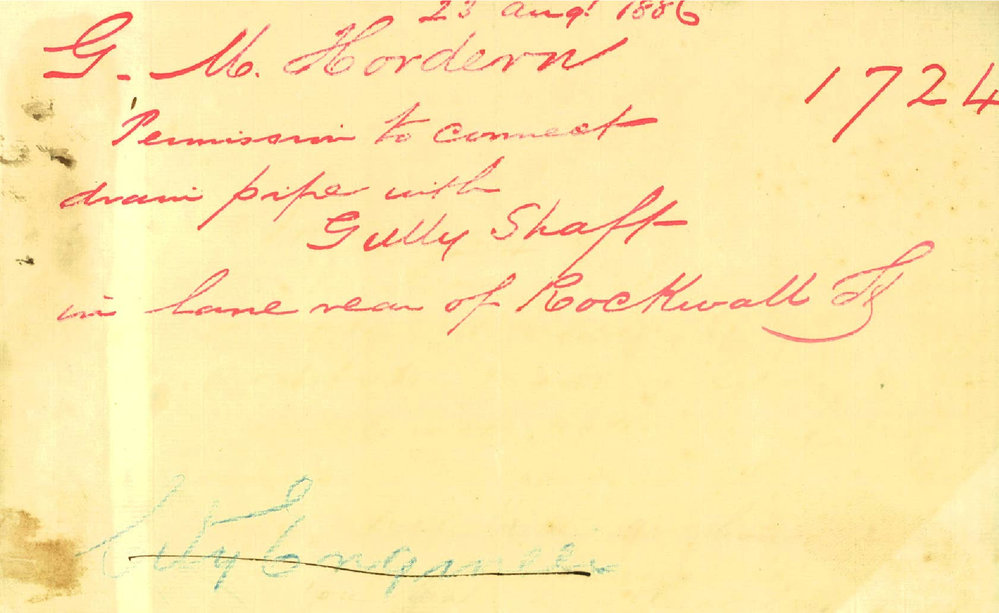 23 Augt 1886
G. M. Hordern
1724
Permission to connect
drain pipe with
Gully Shaft
in lane rear of Rockwall
City Engineer